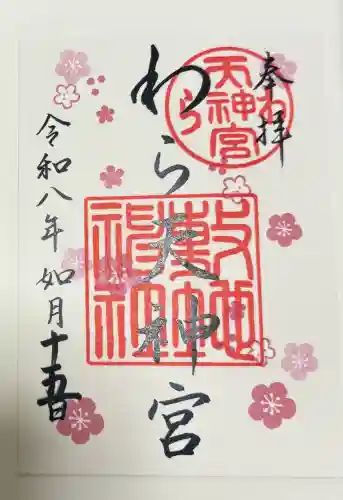 奉拝
わら天神宮
わら天神宮
敷地神社
令和八年如月十五日